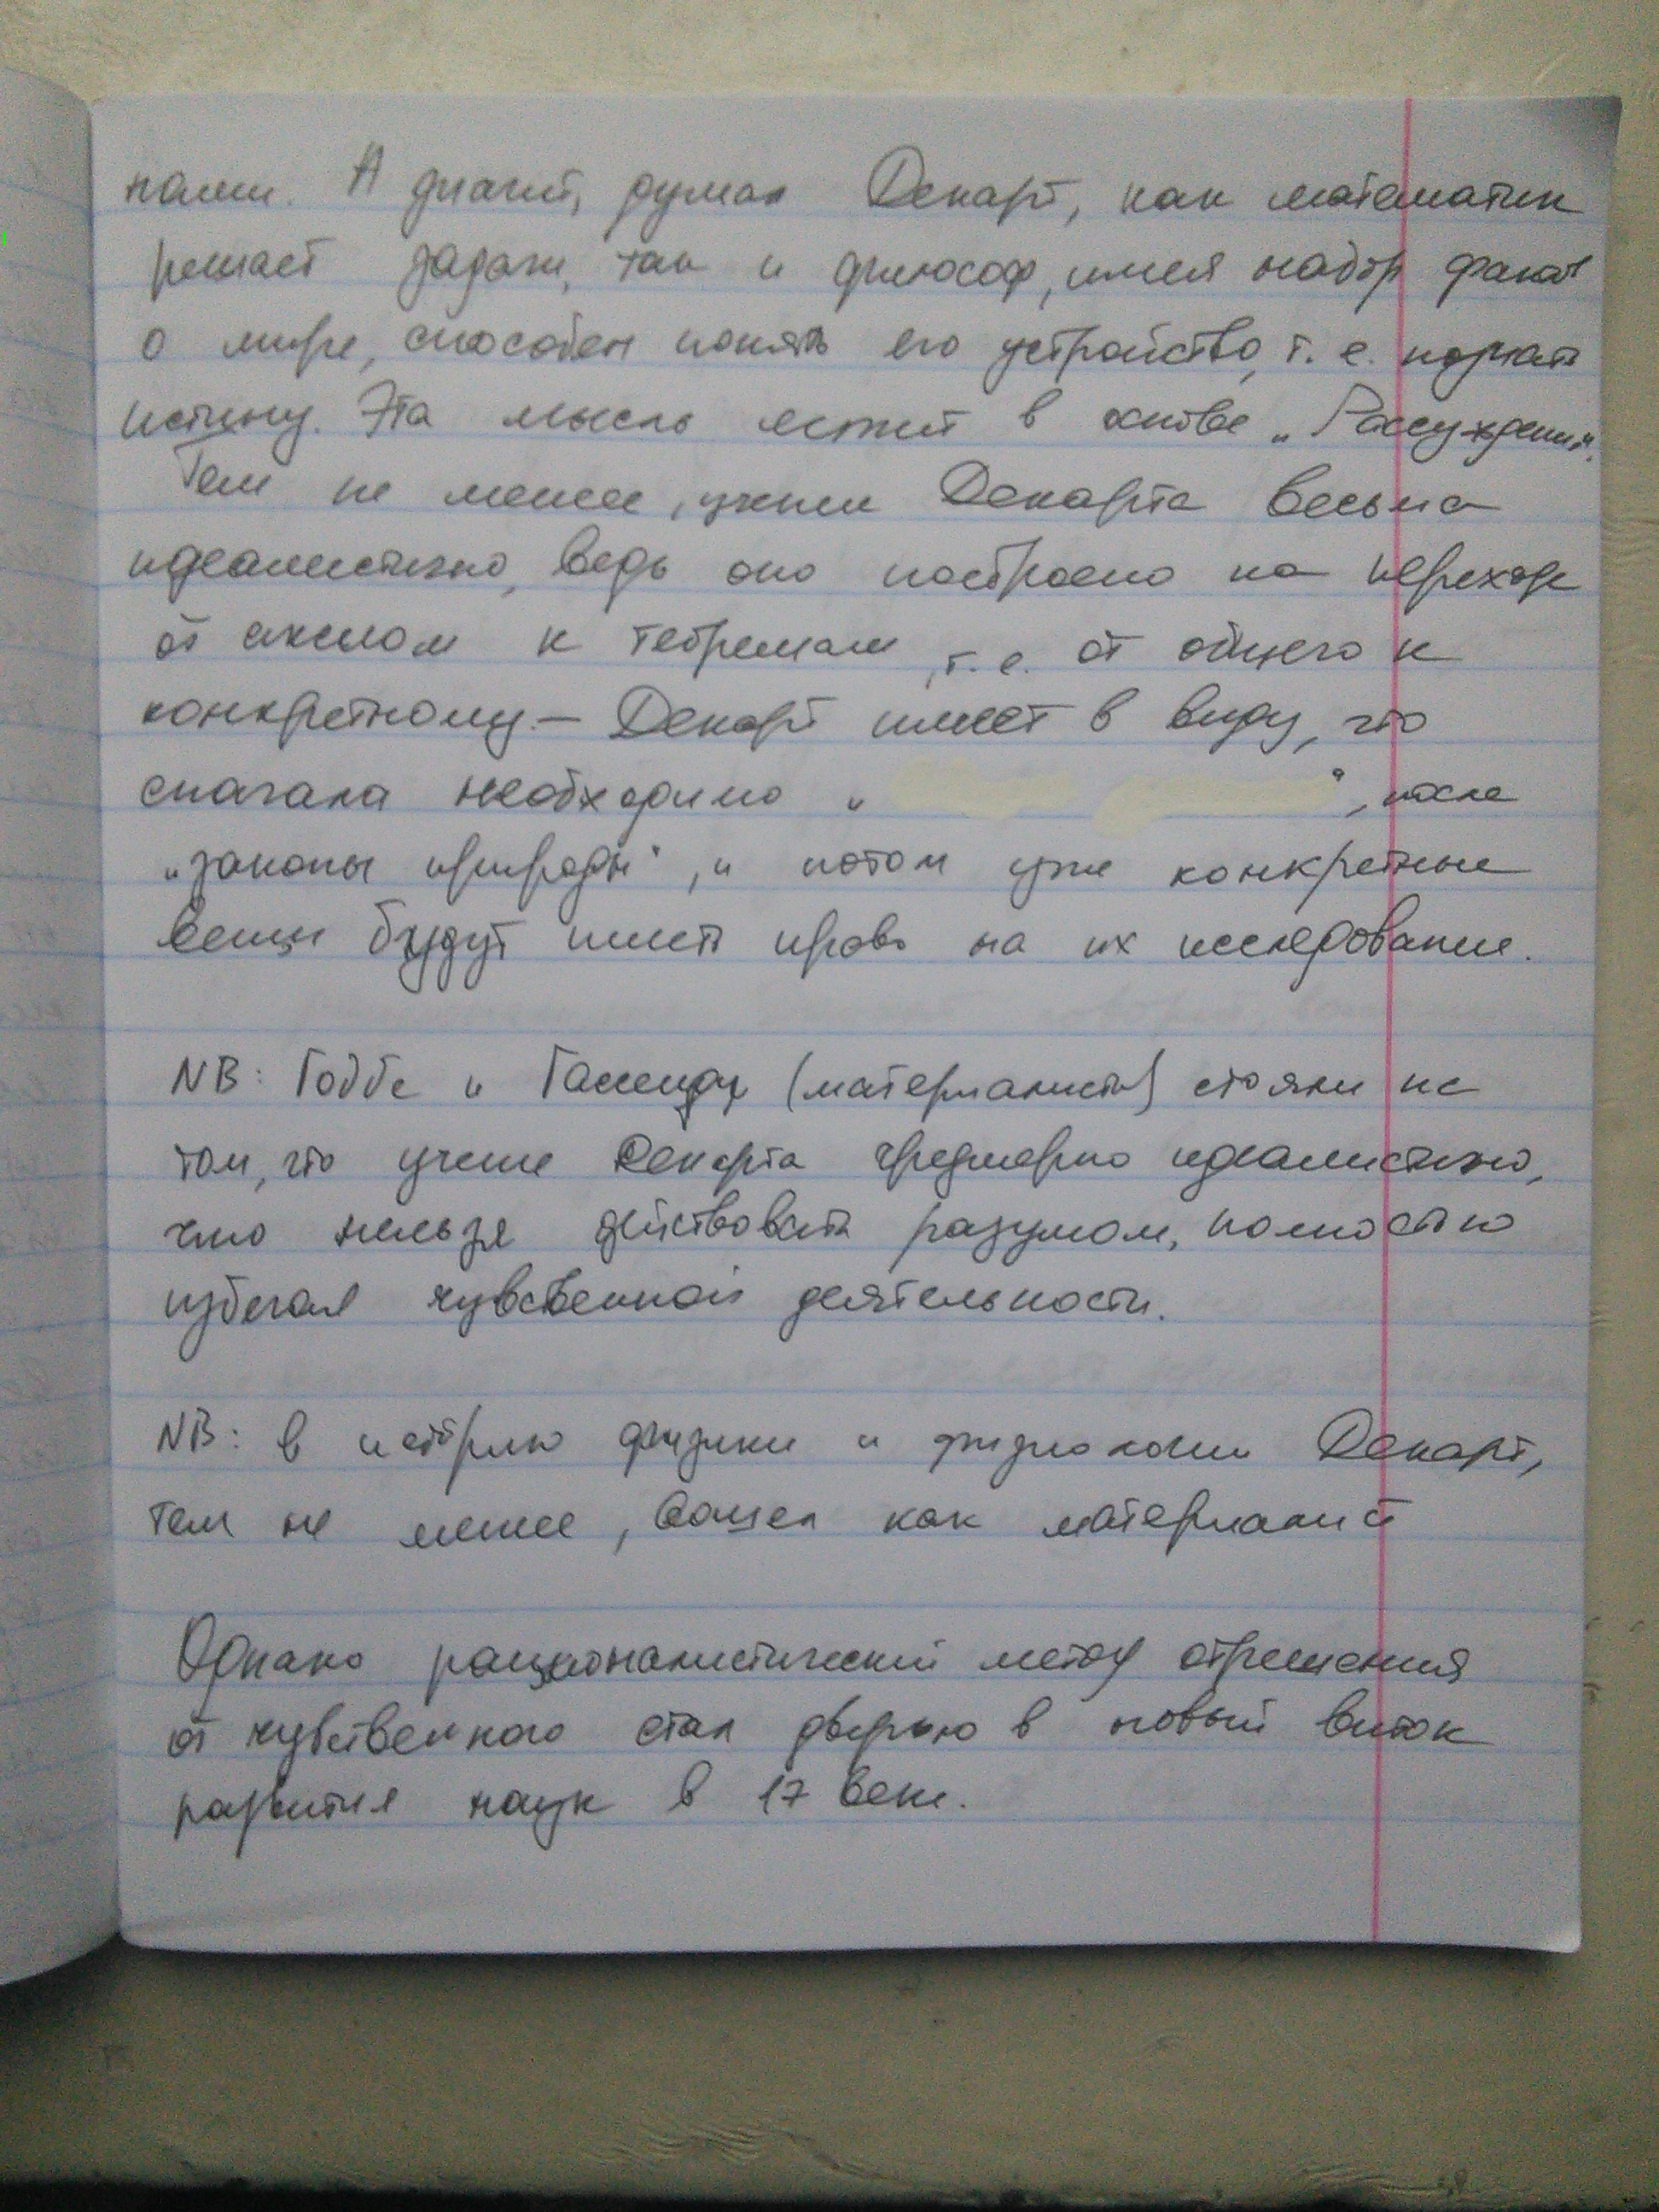 нами. А значит, думал Декарт, как математик
решает задачи, так и философ, имея набор фактов
о мире, способен понять его устройство, т. е. познать
истину. Эта мысль лежит в основе „Рассуждения".
Тем не менее, учение Декарта весьма
идеалистично, ведь оно построено на переходе
от аксиом к теоремам, т. е. от общего к
конкретному – Декарт имеет в виду, что
сначала необходимо „ ", после
„законы природы", и потом уже конкретные
вещи будут иметь право на их исследование.
NB: Гоббс и Гассенди (материалисты) стояли на
том, что учение Декарта чрезмерно идеалистично,
что нельзя действовать разумом, полностью
избегая чувственной деятельности.
NB: в историю физики и физиологии Декарт,
тем не менее, вошел как материалист
Однако рационалистический метод отрешения
от чувственного стал дверью в новый виток
развития наук в 17 веке.